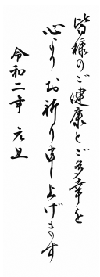 皆様のご健康とご多幸を
心よりお祈り申し上げます
令和二年 元旦